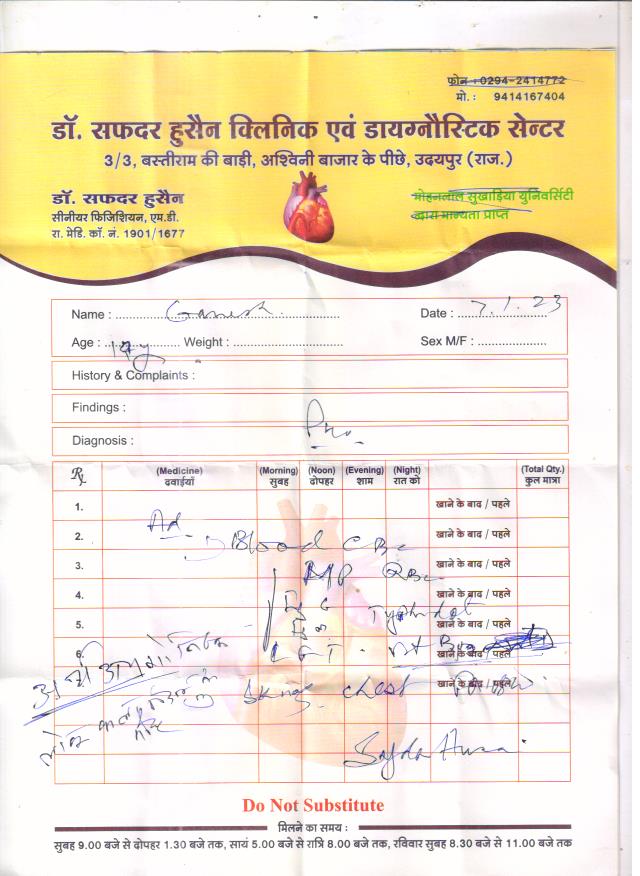 फोन : 0294-2414772
मो. : 9414167404
डॉ. सफदर हुसैन क्लिनिक एवं डायग्नौस्टिक सेन्टर
3/3, बस्तीराम की बाड़ी, अश्विनी बाजार के पीछे, उदयपुर (राज.)
डॉ. सफदर हुसैन
सीनीयर फिजिशियन, एम.डी.
रा. मेडि. कॉ. नं. 1901/1677
मोहनलाल सुखाड़िया युनिवर्सिटी
द्वारा मान्यता प्राप्त
Name : Ganesh Date : 7.1.23
Age : Weight : Sex M/F :
History & Complaints :
Findings :
Diagnosis :
Rx (Medicine) (Morning) (Noon) (Evening) (Night) (Total Qty.)
दवाईयाँ सुबह दोपहर शाम रात को कुल मात्रा
1. खाने के बाद / पहले
2. Ad Blood CBC खाने के बाद / पहले
3. MP QBC खाने के बाद / पहले
4. खाने के बाद / पहले
5. Typhidot खाने के बाद / पहले
6. LFT खाने के बाद / पहले
chest खाने के बाद / पहले
Do Not Substitute
मिलने का समय :
सुबह 9.00 बजे से दोपहर 1.30 बजे तक, सायं 5.00 बजे से रात्रि 8.00 बजे तक, रविवार सुबह 8.30 बजे से 11.00 बजे तक